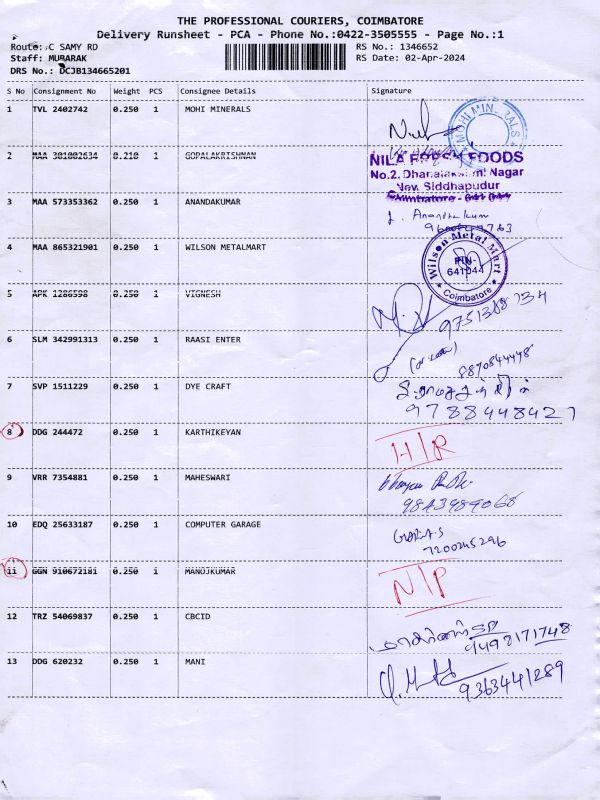 THE PROFESSIONAL COURIERS, COIMBATORE
Delivery Runsheet - PCA - Phone No.:0422-3505555 - Page No.:1
Route: C SAMY RD RS No.: 1346652
Staff: MUBARAK RS Date: 02-Apr-2024
DRS No.: DCJB134665201
S No Consignment No Weight PCS Consignee Details Signature
1 TVL 2402742 0.250 1 MOHI MINERALS
MOHI MINERALS
2 MAA 301002634 0.210 1 GOPALAKRISHNAN
NILA FRESH FOODS
No.2, Dhanalakshmi Nagar
New Siddhapudur
Coimbatore - 641 044
3 MAA 573353362 0.250 1 ANANDAKUMAR
4 MAA 865321901 0.250 1 WILSON METALMART
Wilson Metal Mart
PIN-
641044
Coimbatore
5 APK 1286598 0.250 1 VIGNESH
9751388734
6 SLM 342991313 0.250 1 RAASI ENTER
8870844448
7 SVP 1511229 0.250 1 DYE CRAFT
9788448427
8 DDG 244472 0.250 1 KARTHIKEYAN
H/R
9 VRR 7354881 0.250 1 MAHESWARI
9843989068
10 EDQ 25633187 0.250 1 COMPUTER GARAGE
7200245296
11 GGN 910672181 0.250 1 MANOJKUMAR
N/P
12 TRZ 54069837 0.250 1 CBCID
9498171748
13 DDG 620232 0.250 1 MANI
9363441289